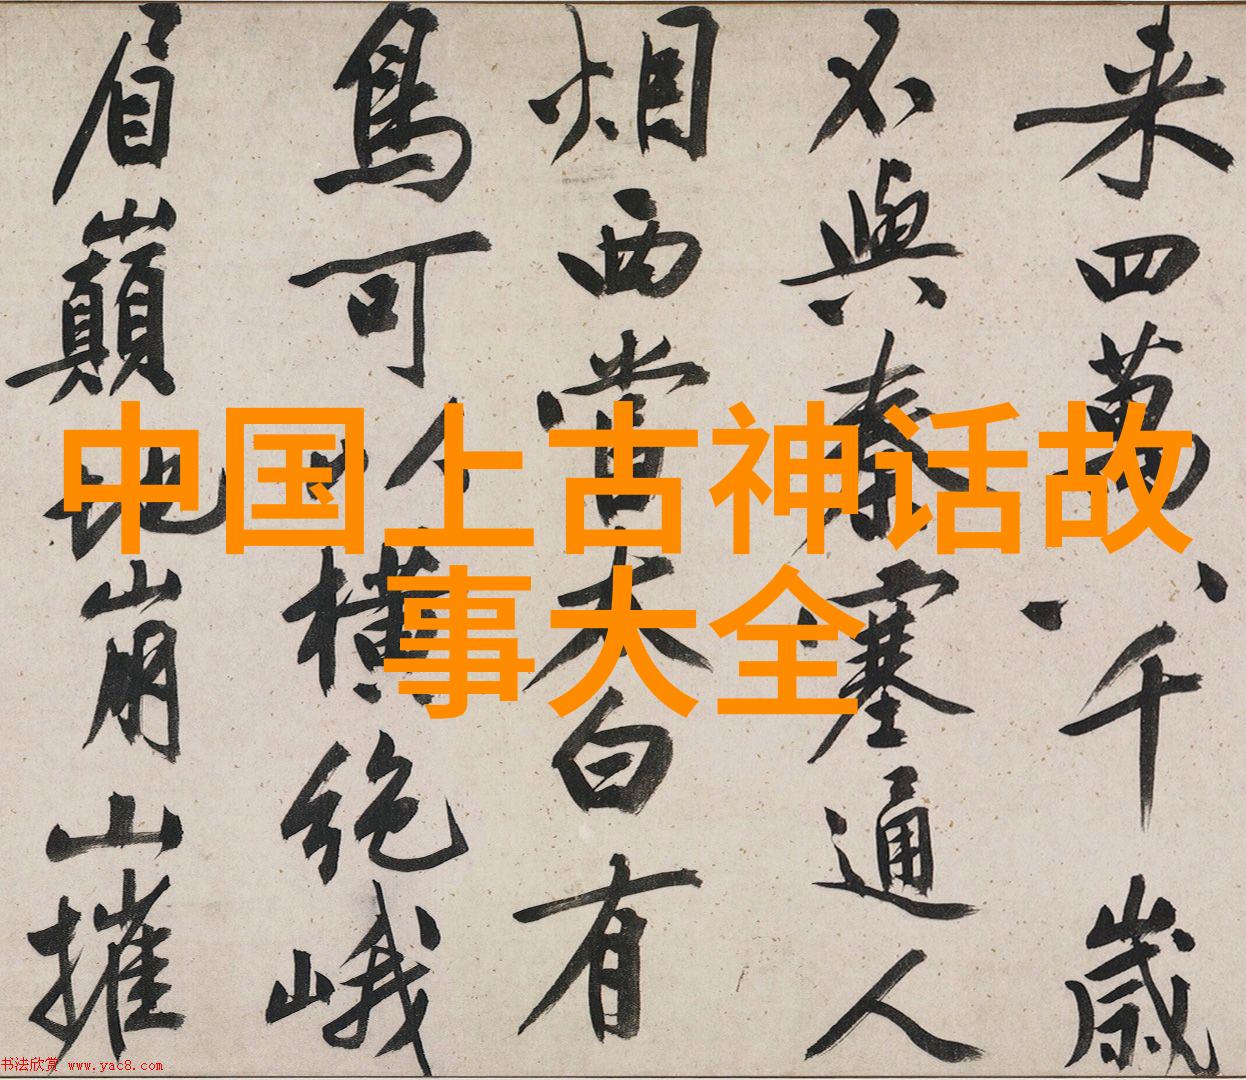 来四萬八千歲
不與秦塞通人
烟西當太白有
鳥可以橫絕峨
眉巔地崩山摧
中国上古神话故
事大全
书法欣赏 www.yac8.com